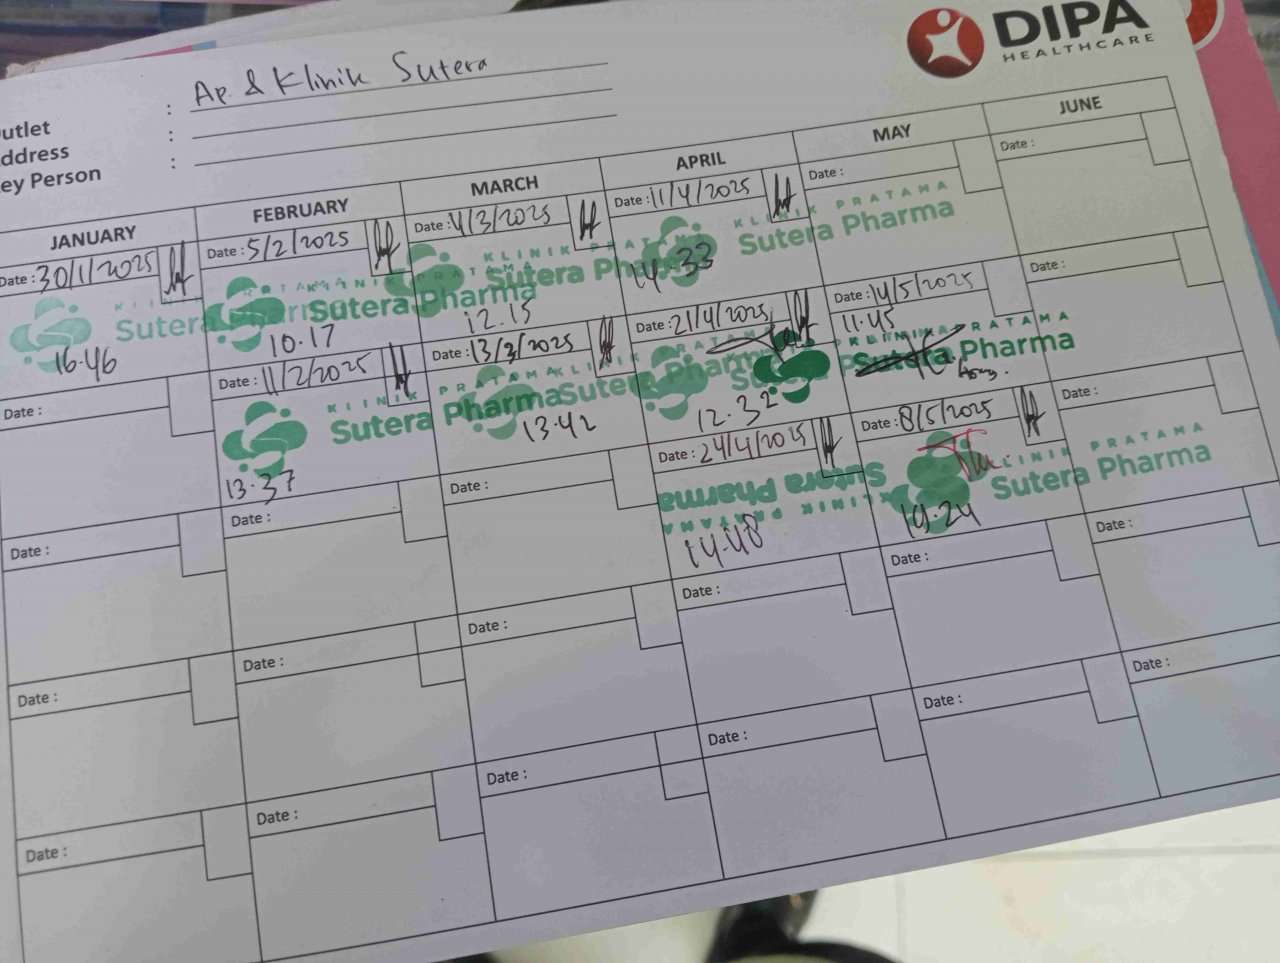 DIPA
HEALTHCARE
utlet : Ap. & Klinik Sutera
ddress :
ey Person :
JANUARY
FEBRUARY
MARCH
APRIL
MAY
JUNE
Date : 30/1/2025
Date : 5/2/2025
Date : 4/3/2025
Date : 11/4/2025
Date :
Date :
Sutera Phar
16.46
Sutera Pharma
10.17
KLINIK PRATAMA
Sutera Pharma
12.15
14.33
KLINIK PRATAMA
Sutera Pharma
Date :
Date : 11/2/2025
Date : 13/3/2025
Date : 21/4/2025
Date : 14/5/2025
Date :
KLINIK PRATAMA
Sutera Pharma
13.37
Sutera Pharma
13.42
12.32
11.45
PRATAMA
Sutera Pharma
Date :
Date :
Date :
Date : 24/4/2025
Date : 8/5/2025
Date :
Sutera Pharma
KLINIK PRATAMA
14.48
KLINIK PRATAMA
Sutera Pharma
19.24
Date :
Date :
Date :
Date :
Date :
Date :
Date :
Date :
Date :
Date :
Date :
Date :